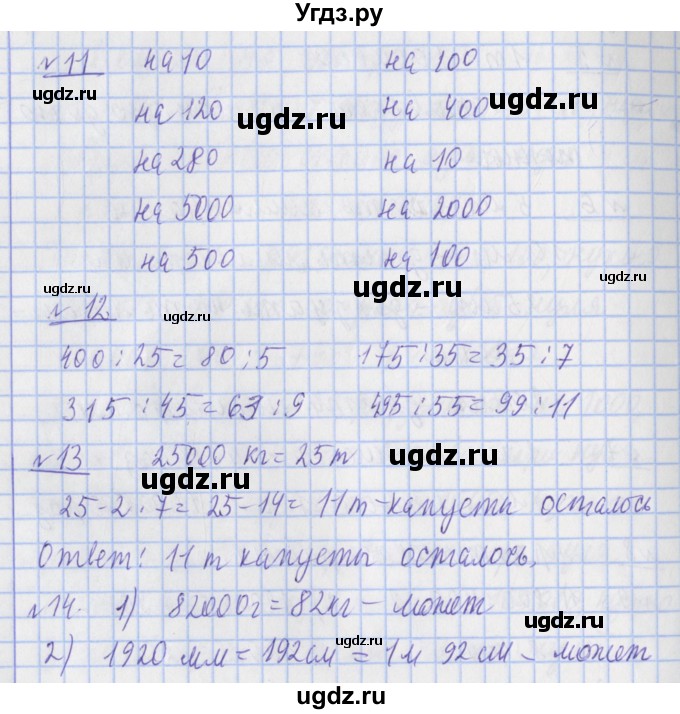 Угдз.ру
№11 на 10 на 100
ugdz.ru ugdz.ru
на 120 на 400
ugdz.ru
на 280 на 10
на 5000 на 2000
на 500 на 100
ugdz.ru ugdz.ru ugdz.ru
№12. ugdz.ru
400:25=80:5 175:35=35:7
315:45=63:9 495:55=99:11
ugdz.ru
№13 25000 кг=25т
ugdz.ru
25-2·7=25-14=11т-капусты осталось
Ответ: 11 т капусты осталось.
№14. 1) 82000г=82кг-может
ugdz.ru
2) 1920 мм=192см=1м 92см-может
ugdz.ru ugdz.ru
ugdz.ru